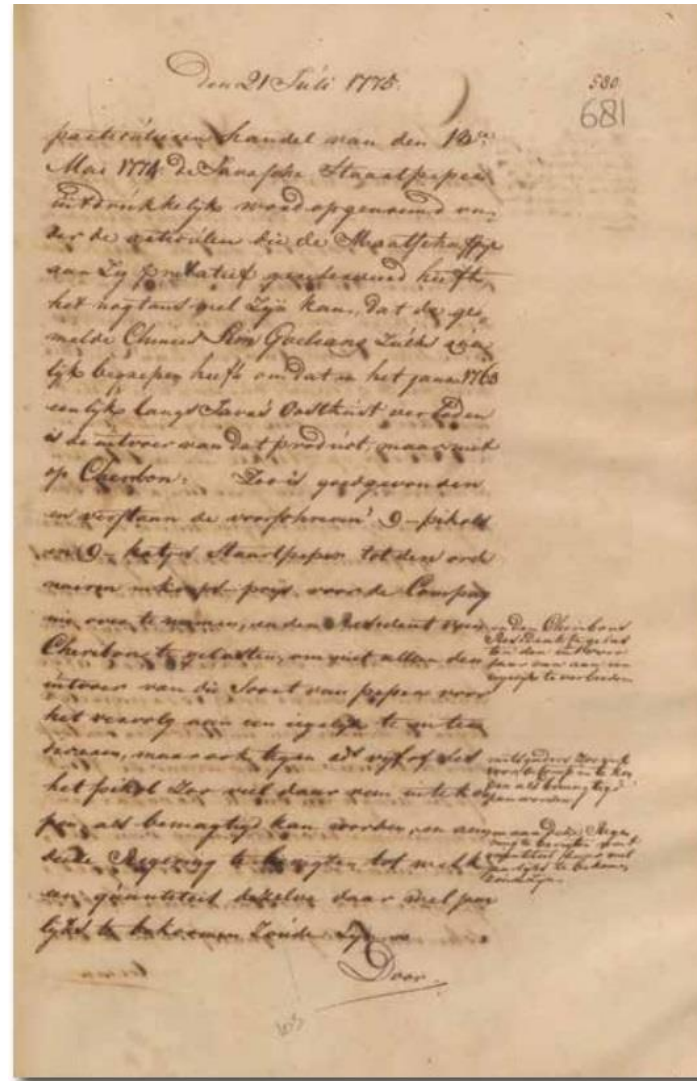 Den 21 Juli 1775.
580
681
particulieren handel van den 18en
Mai 1774 de Javasche Staartpeper
uitdrukkelijk word opgenoemd on,
der de articulen die de Maatschappij
aan Zig privatief gereserveerd heeft
het nogtans wel Zijn kan, dat de ge,
melde Chinees Zulks
lijk begrepen heeft omdat in het jaar 1763
eenlijk langs Javas Oostkust verboden
is de uitvoer van dat product, maar niet
op Cheribon. Zoo is goedgevonden
en verstaan de voorschreven 9 pikols
en 9 katjes Staartpeper tot den ordi
nairen inkoops prijs voor de Compag
nie over te nemen, en den Resident van
Cheribon te gelasten, om niet alleen den
uitvoer van die Soort van peper voor
het vervolg aan een iegelijk te
maar ook tegen vijf of Ses
het pikol Zoo veel daar van in te koo
pen als bemagtigd kan worden, en aan
deese Regering te berigten tot welk
een quantiteit dezelve daar wel jaar
lijks te bekoomen Zoude Zijn
Door
en den Cheribons
Resident te gelas
ten den uitvoer
daar van aan een
iegelijk te verbieden
Zoo veel
voor de Comp in te koo
pen als bemagtigd
kan worden
en aan deese Rege
ring te berigten
quantiteit
jaarlijks te bekomen
Zoude Zijn